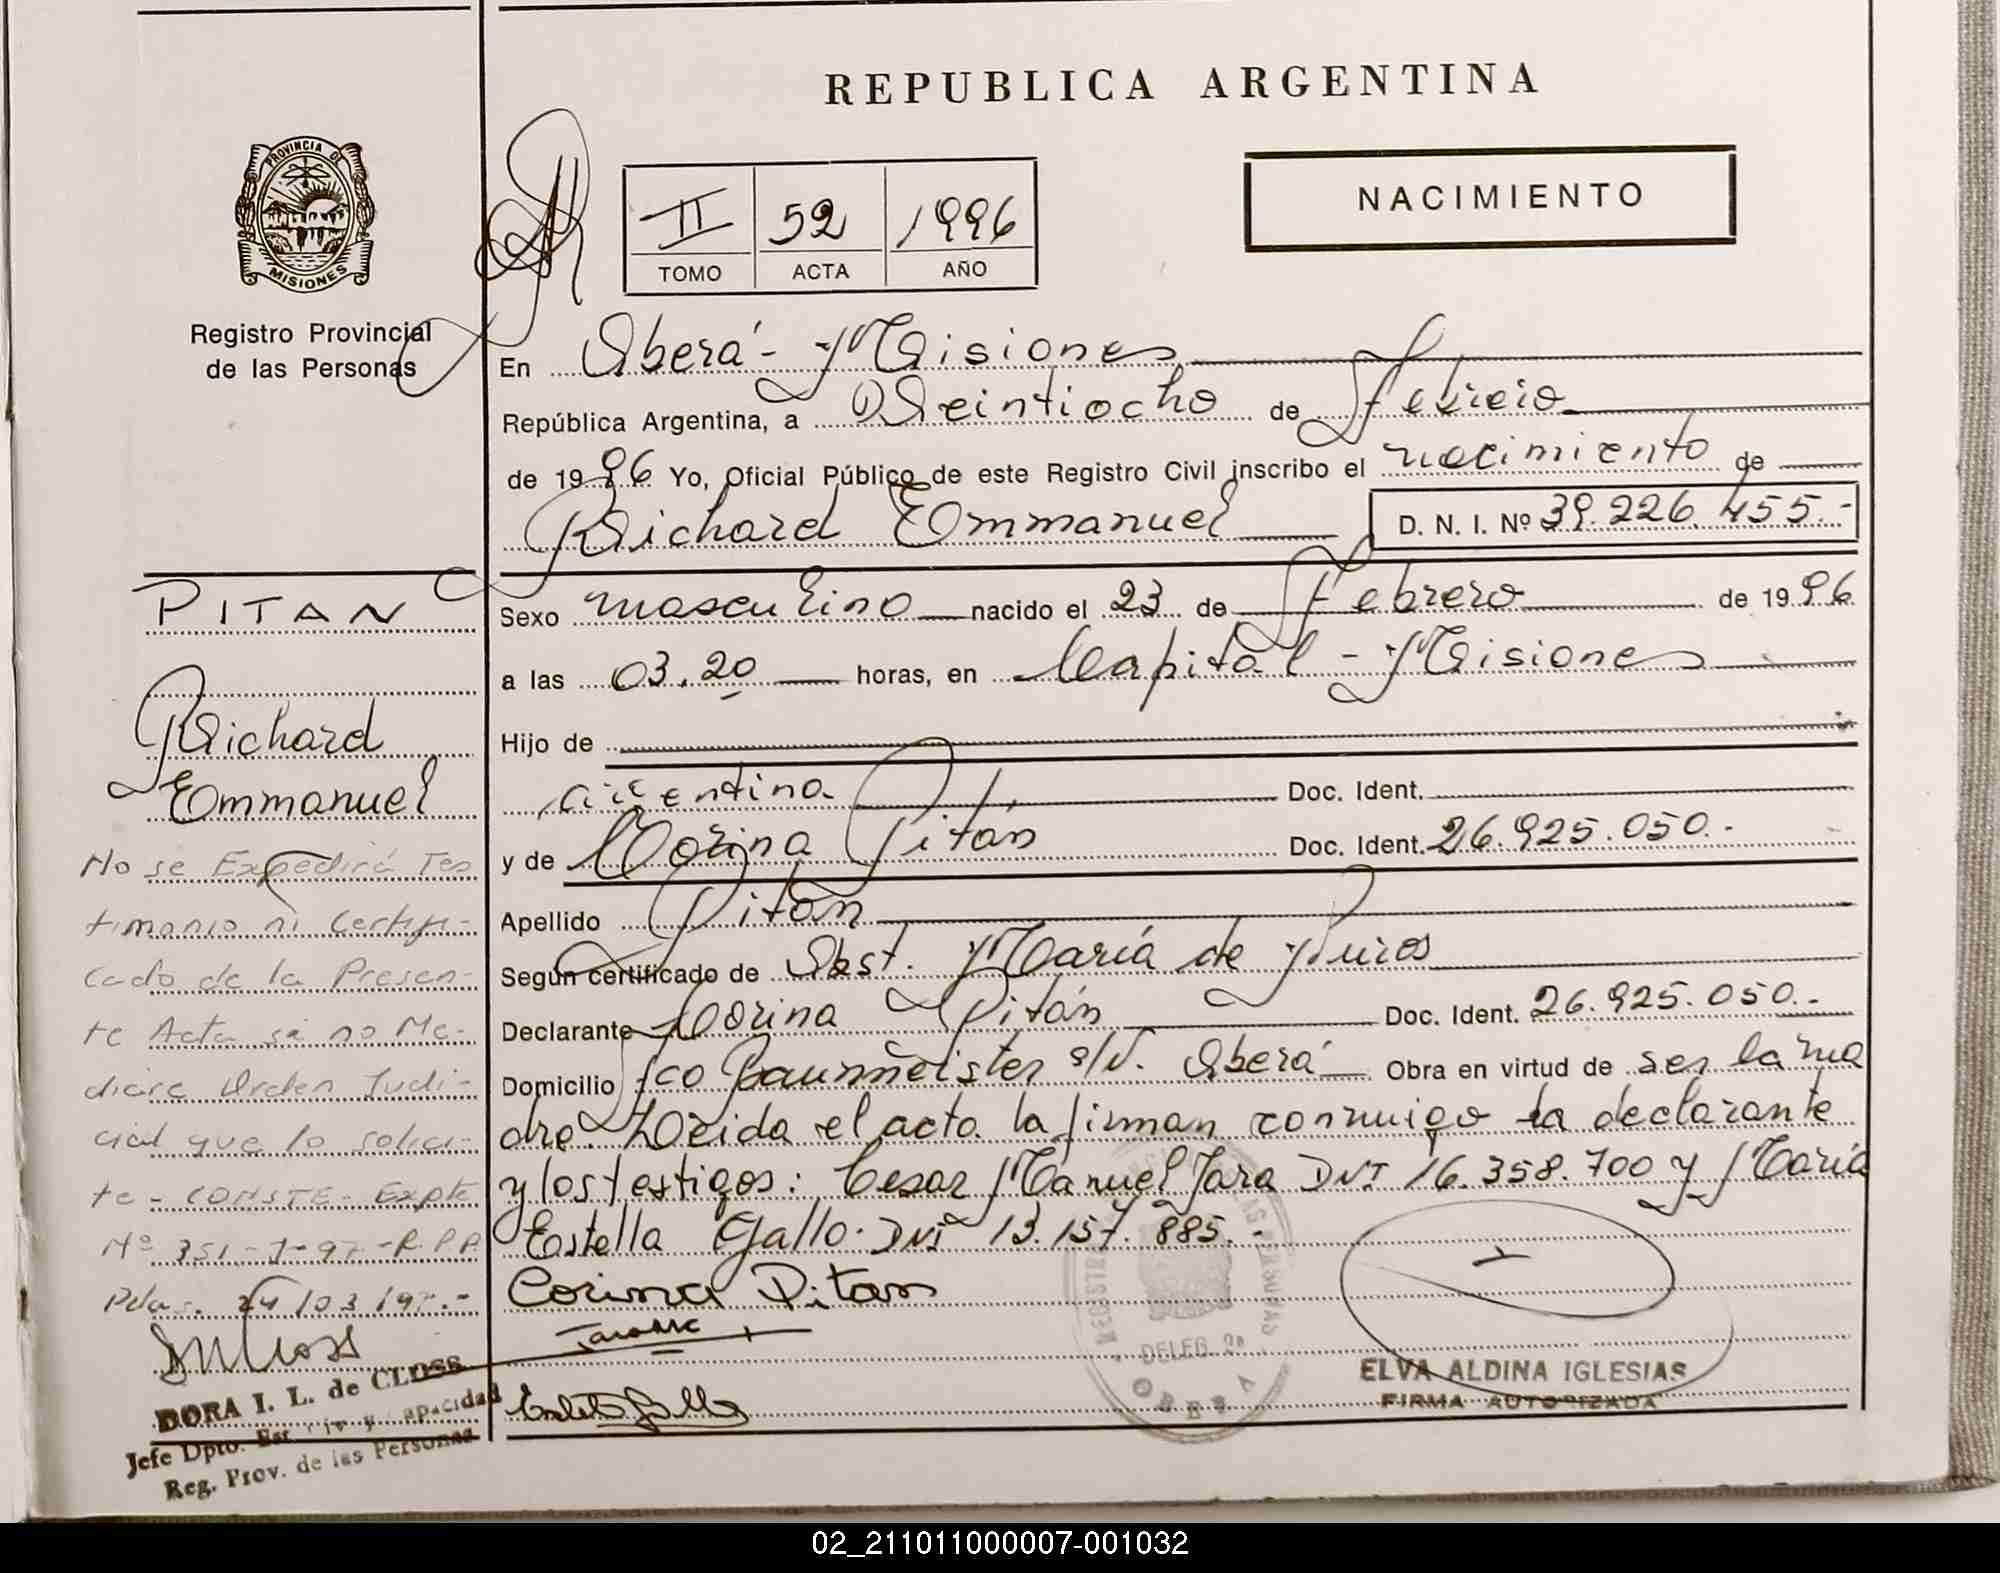 REPUBLICA ARGENTINA
PROVINCIA DE
MISIONES
Registro Provincial
de las Personas
II 52 1996
TOMO ACTA AÑO
NACIMIENTO
En Oberá - Misiones
República Argentina, a Veintiocho de febrero
de 1996 Yo, Oficial Público de este Registro Civil inscribo el nacimiento de
Richard Emmanuel D. N. I. Nº 39.226.455.-
Sexo masculino nacido el 23 de Febrero de 1996
a las 03.20 horas, en Capital - Misiones
Hijo de
argentina Doc. Ident.
y de Corina Pitán Doc. Ident. 26.925.050.-
Apellido Pitán
Según certificado de Obst. María de
Declarante Corina Pitán Doc. Ident. 26.925.050.-
Domicilio fco Baunmeister s/N. Oberá Obra en virtud de ser la ma
dre. Leida el acta la firman conmigo la declarante
y los testigos: Cesar Manuel Jara DNI 16.358.700 y María
Estella Gallo. DNI 13.157.885.-
Corina Pitan
ELVA ALDINA IGLESIAS
FIRMA AUTORIZADA
DELEG
PITAN
Richard
Emmanuel
No se Expedirá Tes
timonio ni Certifi-
cado de la Presen-
te Acta si no Me-
diare Orden Judi-
cial que lo solici-
te - CONSTE - Expte
Nº 351-J-97-R.P.P.
Pdas. 24/03/97.-
DORA I. L. de CLOSS
Jefe Dpto. Est. Civ y Capacidad
Reg. Prov. de las Personas
02_211011000007-001032